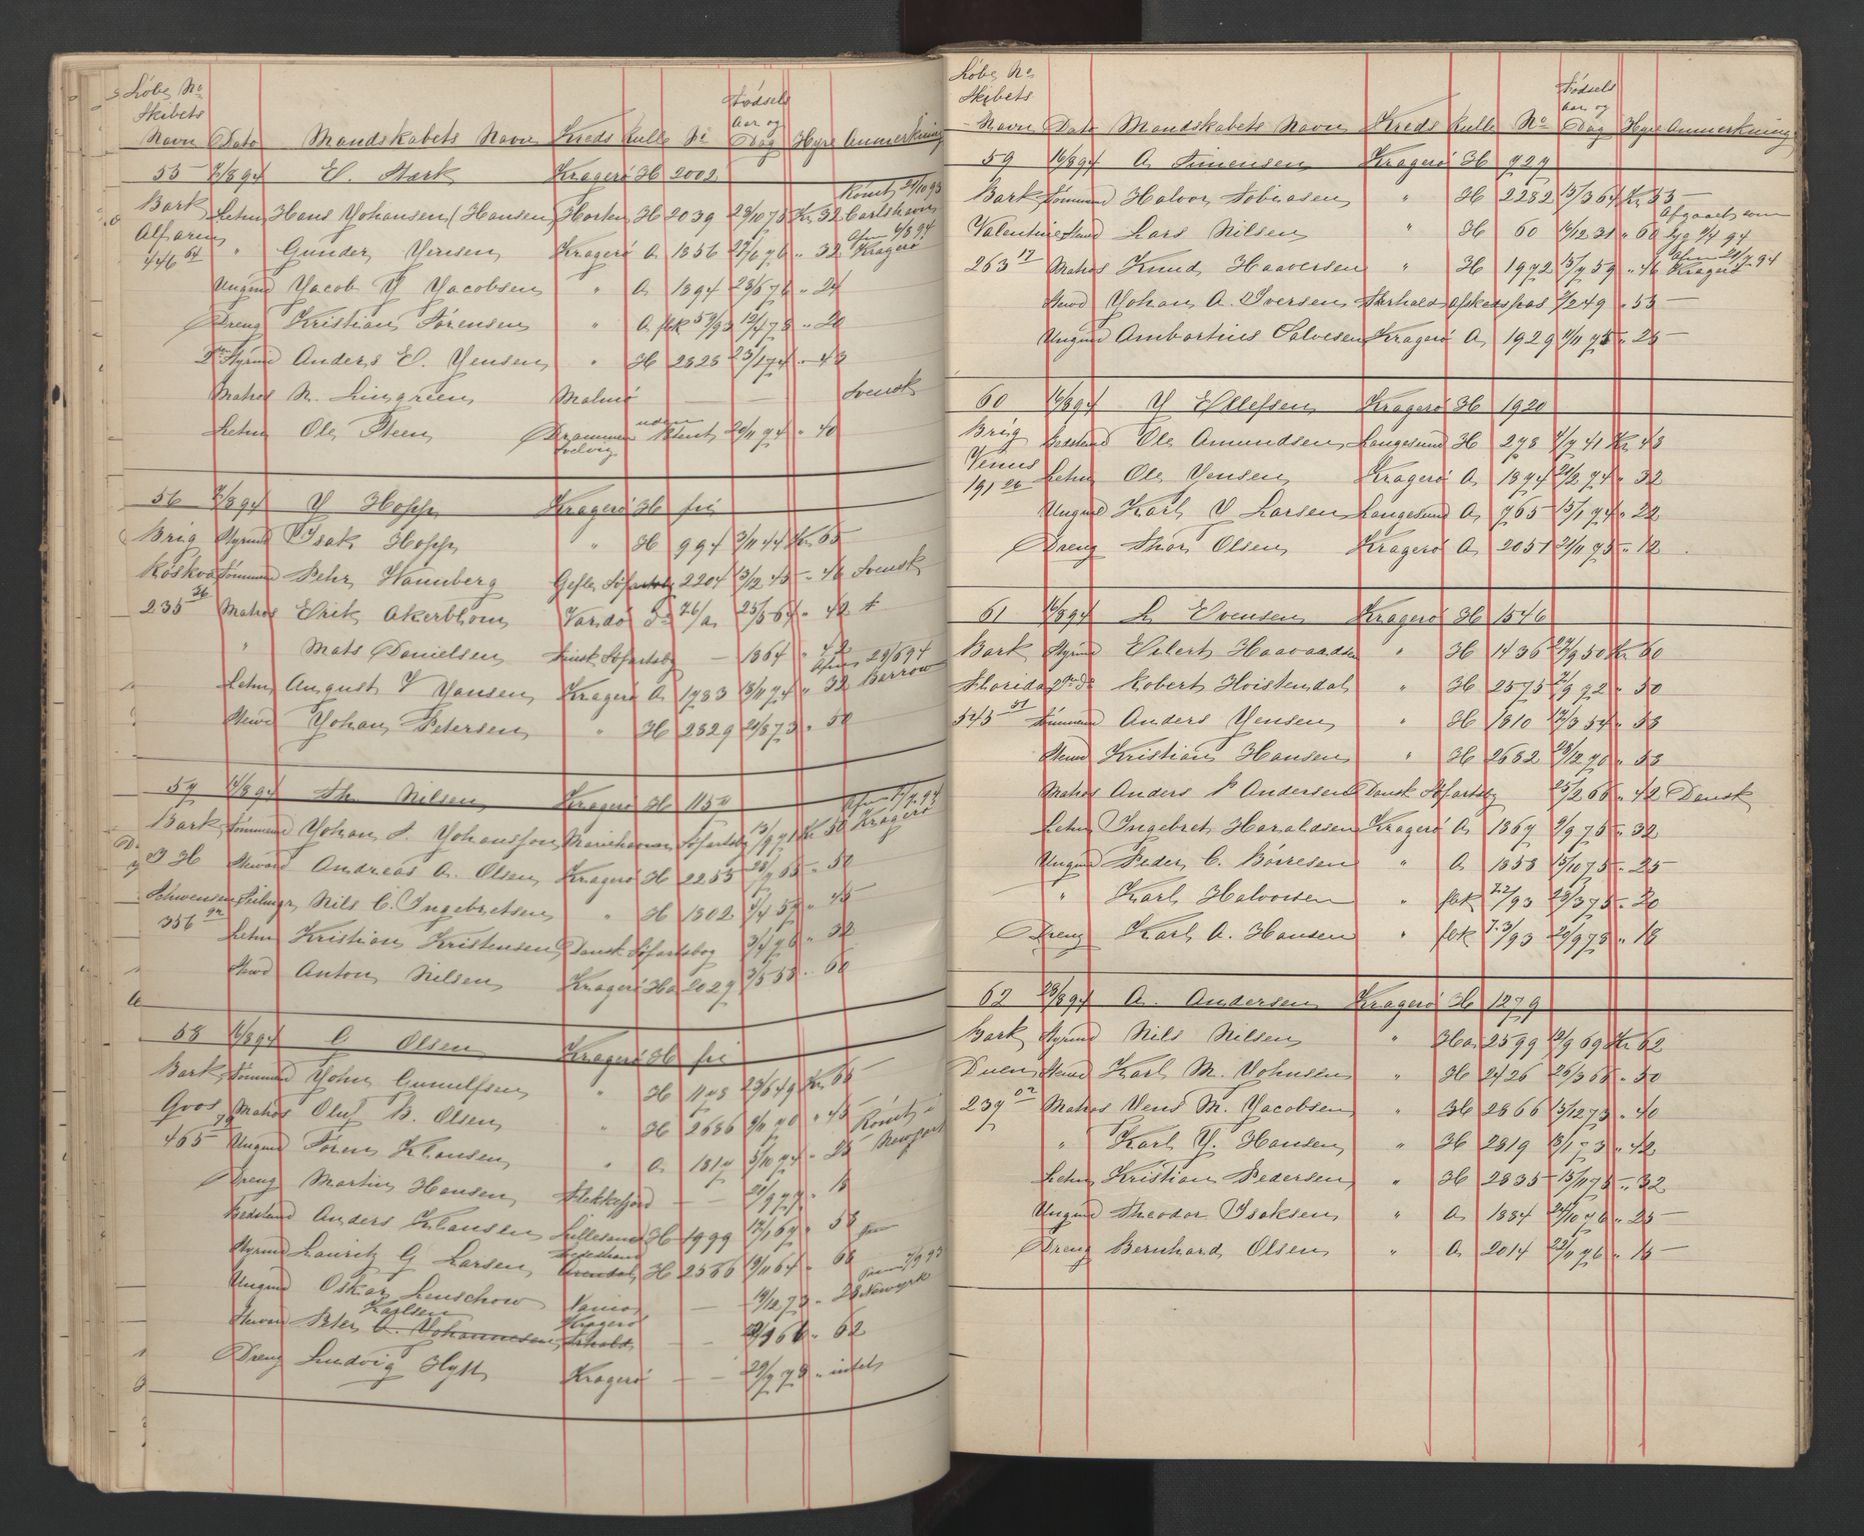 Løbe No
Skibets
Navn Dato Mandskabets Navn Kreds Rulle No Fødsels Aar og Dag Hyre Anmerkning
55 7/8 94 E. Stark Kragerø H 2002
Bark Letm Hans Johansen (Hansen) Horten H 2039 Kr 32 Rømt 21/10 93 Carlshavn
Alfarin " Gunder Jensen Kragerø A 1856 27/6 76 " 32 Afm 6/8 94 Kragerø
446 64
Ungmd Jacob J Jacobsen " A 1894 28/5 76 " 24
Dreng Kristian Sørensen " A fek 57/93 12/4 78 " 20
Styrmd Anders E. Jensen " H 2828 23/1 74 " 43
Matros N. Lingrien Malmø — — Svensk
Letm Ole Steen Drammen Svelvig uden Patent 20/11 74 " 40
56 7/8 94 J Hopp Kragerø H fri
Brig Styrmd Isak Hopp " H 994 3/11 44 Kr 65
Røskva Tømmermd Pehr Wannberg Gefle Søfartsbg 2204 13/12 45 " 46 Svensk
235 36 Matros Erik Akerblom Vardø 76/a 25/5 64 " 42
" Mats Danielsen Finsk Søfartsbg — 1864 " 42 Afm 29/6 94 Barrow
Letm August V Jansen Kragerø A 1783 13/11 74 " 32
Stewd Johan Petersen " H 2829 24/8 73 " 50
57 14/8 94 Th. Nilsen Kragerø H 1157
Bark Tømmermd Johan S. Johansson Mariehavn Søfartsbg 13/9 71 Kr 50 Kragerø
J H Steward Andreas A. Olsen Kragerø H 2255 65 " 50
Schwensen Seilmgr Nils C. Ingebretsen " H 1302 1/4 57 " 45
356 92
Letm Kristian Kristensen Dansk Søfartsbog 3/4 76 " 32
Stewd Anton Nilsen Kragerø Ha 2027 3/5 58 " 60
58 16/8 94 O Olsen Kragerø H fri
Bark Tømmermd John Gunulfsen " H 1178 23/6 49 Kr 65
Goos Matros Oluf B. Olsen " H 2686 9/11 70 " 45 Rømt i Newport
465 79 Ungmd Søren Klausen " A 1817 5/10 74 " 25
Dreng Martin Hansen Flekkefjord — — 21/9 77 " 15
Bedstemd Anders Klausen Lillesand H 1999 12/1 67 " 53
Styrmd Lauritz G Larsen Arendal H 2566 19/11 64 " 66
Ungmd Oskar Lenschow — 14/12 73 " 28 7/9 93 Newyrk
Karlsen Kragerø
Stewar Peter O. Johannesen — — 66 " 62
Dreng Ludvig Hytt Kragerø — — 29/7 78 " intet
Løbe No
Skibets
Navn Dato Mandskabets Navn Kreds Rulle No Fødsels Aar og Dag Hyre Anmerkning
59 16/8 94 A Simensen Kragerø H 727
Bark Tømmermd Halvor Tobiasen " H 2282 13/3 64 Kr 55
Valentine Stewd Lars Nilsen " H 60 6/12 31 " 60 Afgaaet som Syg 9/4 94
263 17 Matros Knud Haaversen " H 1972 15/7 59 " 46 Afm 21/7 94 Kragerø
Stewd Johan A. Iversen Forhold afskedspas 2/2 49 " 53
Ungmd Ambortius Salvesen Kragerø A 1929 11/11 75 " 25
60 16/8 94 J Ellefsen Kragerø H 1920
Brig Bedstemd Ole Amundsen Langesund H 278 4/7 41 Kr 48
Venus Letm Ole Jensen Kragerø A 1894 22/2 74 " 32
191 26
Ungmd Karl J Larsen Langesund A 765 15/1 74 " 22
Dreng Thor Olsen Kragerø A 2051 21/11 75 " 12
61 16/8 94 L Evensen Kragerø H 1546
Bark Styrmd Eilert Haavaldsen " H 1436 27/9 50 Kr 60
Florida 2den do Robert Hoistendal " H 2575 2/9 72 " 50
545 31 Tømmermd Anders Jensen " H 1810 17/3 54 " 53
Stewd Kristian Hansen " H 2682 28/12 70 " 53
Matros Anders P Andersen Dansk Søfartsbg 25/2 66 " 42 Dansk
Letm Ingebret Haraldsen Kragerø A 1867 9/9 75 " 32
Ungmd Peder C. Børresen " A 1858 15/10 75 " 25
" Karl Halvorsen " fek 72/93 23/3 75 " 20
Dreng Karl A. Hansen " fek 73/93 20/9 78 " 18
62 23/8 94 A. Andersen Kragerø H 1279
Bark Styrmd Nils Nilsen " Ha 2599 12/9 69 Kr 62
Duen Stewd Karl M. Johnsen " H 2426 26/3 66 " 50
237 02 Matros Jens M. Jacobsen " H 2866 13/12 73 " 40
" Karl J. Hansen " H 2819 8/1 73 " 42
Letm Kristian Pedersen " H 2835 13/11 75 " 32
Ungmd Theodor Isaksen " A 1884 24/10 76 " 25
Dreng Bernhard Olsen " A 2014 22/11 76 " 15